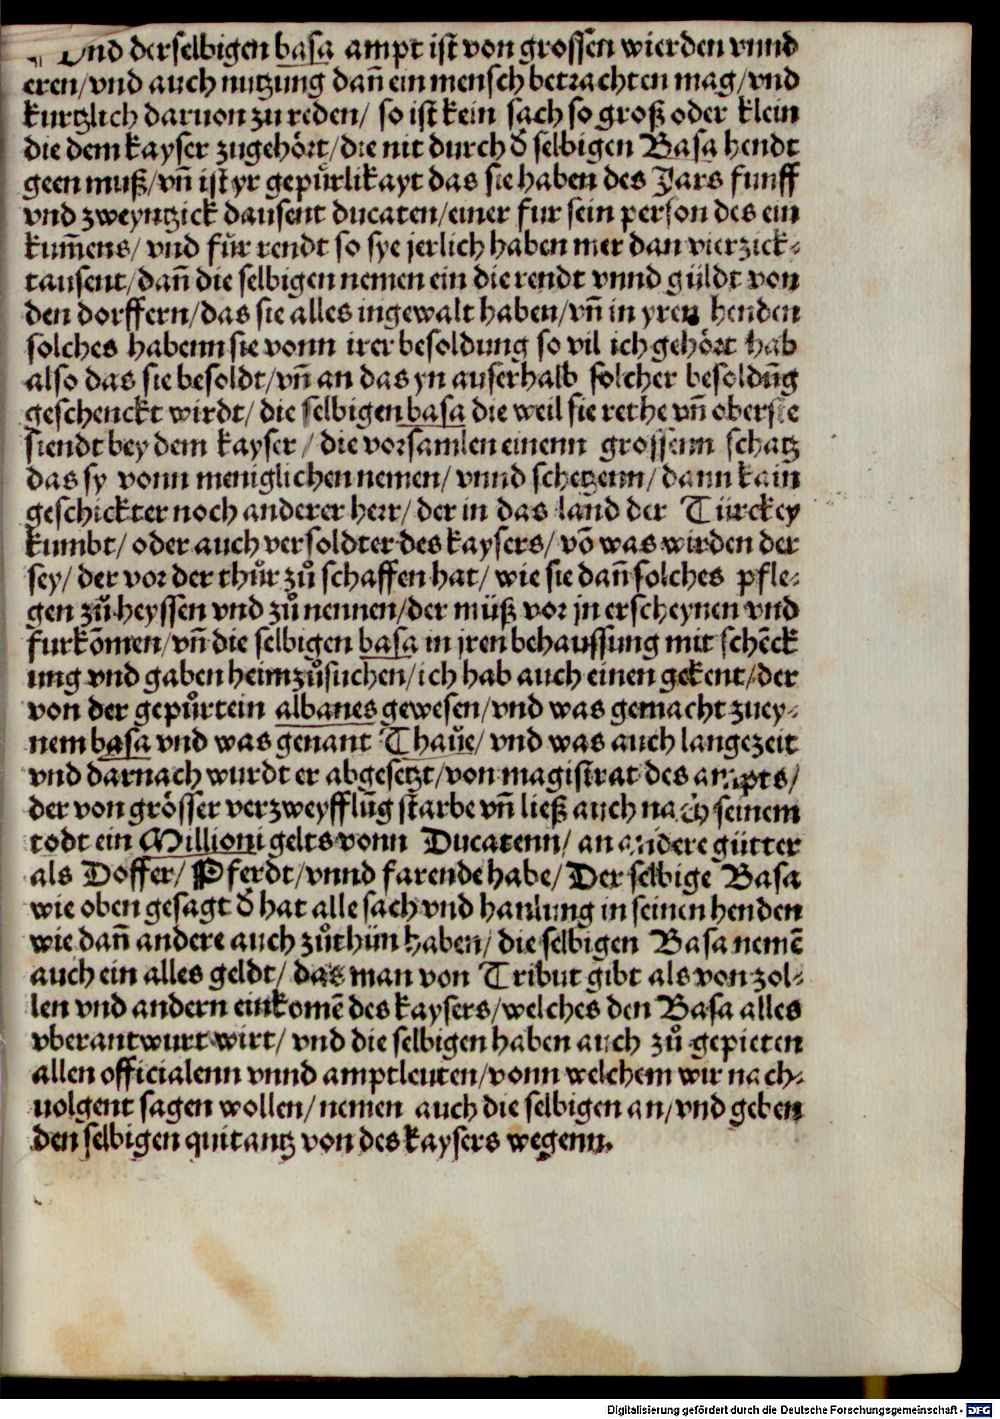 Und derselbigen basa ampt ist von grossen wierden vnnd
eren/vnd auch nutzung dañ ein mensch betrachten mag/vnd
kurtzlich daruon zu reden/ so ist kein sach so groß oder klein
die dem kayser zugehört/die nit durch d̕ selbigen Basa hendt
geen muß/vñ ist yr gepürlikayt das sie haben des Jars funff
vnd zweyntzick dausent ducaten/einer fur sein person des ein
kum̃ens/ vnd für rendt so sye jerlich haben mer dan vierzick-
tausent/dañ die selbigen nemen ein die rendt vnnd güldt von
den dorffern/das sie alles ingewalt haben/vñ in yren henden
solches habenn sie vonn irer besoldung so vil ich gehört hab
also das sie besoldt/vñ an das yn auserhalb solcher besoldũg
geschenckt wirdt/ die selbigen basa die weil sie rethe vñ oberste
siendt bey dem kayser/ die vorsamlen einenn grossenn schatz
das sy vonn meniglichen nemen/ vnnd schetzenn/ dann kain
geschickter noch anderer herr/ der in das land der Türckey
kumbt/ oder auch versoldter des kaysers/ võ was wirden der
sey/ der vor der thůr zů schaffen hat/ wie sie dañ solches pfle-
gen zů heyssen vnd zů nennen/der müß vor jn erscheynen vnd
furkõmen/vñ die selbigen basa in jren behaussung mit schẽck
ung vnd gaben heimzůsuchen/ich hab auch einen gekent/der
von der gepůrt ein albanes gewesen/vnd was gemacht zu ey-
nem basa vnd was genant Thaũe/ vnd was auch lange zeit
vnd darnach wurdt er abgesetzt/von magistrat des ampts/
der von grösser verzweyfflũg starbe vñ ließ auch nach seinem
todt ein Millioni gelts vonn Ducatenn/ an andere gütter
als Doffer/ Pferdt/vnnd farende habe/ Der selbige Basa
wie oben gesagt d̕ hat alle sach vnd hanlung in seinen henden
wie dañ andere auch zůthün haben/ die selbigen Basa nemẽ
auch ein alles geldt/ das man von Tribut gibt als von zol-
len vnd andern einkomẽ des kaysers/welches den Basa alles
vberantwurt wirt/ vnd die selbigen haben auch zů gepieten
allen officialenn vnnd amptleuten/vonn welchem wir nach-
uolgent sagen wollen/nemen auch die selbigen an/vnd geben
den selbigen quitantz von des kaysers wegenn.
Digitalisierung gefördert durch die Deutsche Forschungsgemeinschaft - DFG